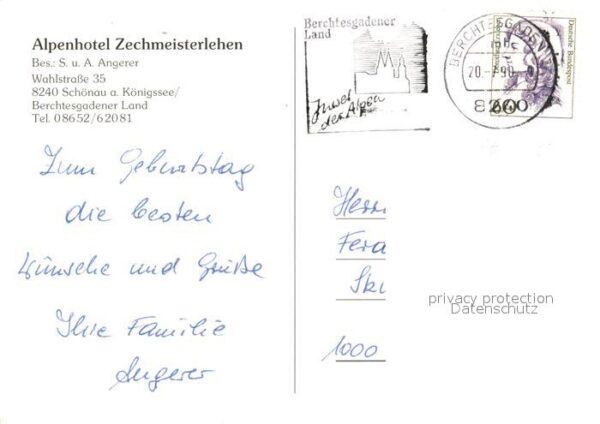 Alpenhotel Zechmeisterlehen
Bes.: S. u. A. Angerer
Wahlstraße 35
8240 Schönau a. Königssee/
Berchtesgadener Land
Tel. 08652/62081
Zum Geburtstag
die besten
Wünsche und Grüße
Ihre Familie
Angerer
Berchtesgadener
Land
Insel
der Alpen
BERCHTESGADEN
20.-7.90
8240
Deutsche Bundespost
Herrn
Fera
Ski
1000
privacy protection
Datenschutz